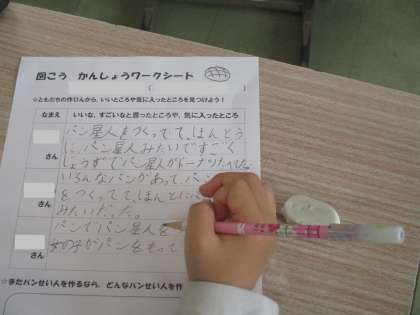 図こう かんしょうワークシート
( )
☆ともだちの作ひんから、いいところや気に入ったところを見つけよう！
なまえ いいな、すごいなと思ったところや、気に入ったところ
さん
パン星人をつくってて、ほんとう
に、パン星人みたいですごく
じょうずでパン星人がドーナツ
さん
いろんなパンがあって、パン
をつくってて、ほんとに
みたいだった。
さん
パンでパン星人を
女の子がパンをもって
☆またパンせい人を作るなら、どんなパンせい人を作